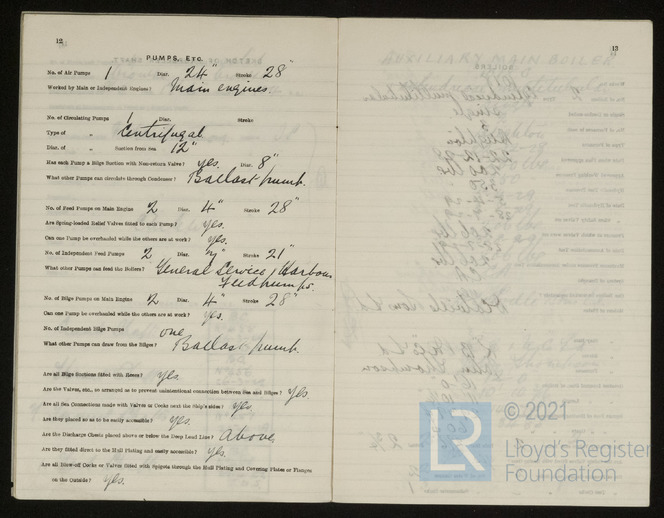 12
PUMPS, ETC.
No. of Air Pumps 1 Diar. 24" Stroke 28"
Worked by Main or Independent Engines? Main engines.
No. of Circulating Pumps 1 Diar. Stroke
Type of " Centrifugal
Diar. of " Suction from Sea 12"
Has each Pump a Bilge Suction with Non-return Valve? Yes. Diar. 8"
What other Pumps can circulate through Condenser? Ballast pump.
No. of Feed Pumps on Main Engine 2 Diar. 4" Stroke 28"
Are Spring-loaded Relief Valves fitted to each Pump? Yes.
Can one Pump be overhauled while the others are at work? Yes.
No. of Independent Feed Pumps 2 Diar. Stroke 21"
What other Pumps can feed the Boilers? General Service / Harbour
Feed pumps.
No. of Bilge Pumps on Main Engine 2 Diar. 4" Stroke 28"
Can one Pump be overhauled while the others are at work? Yes.
No. of Independent Bilge Pumps one
What other Pumps can draw from the Bilges? Ballast pump.
Are all Bilge Suctions fitted with Roses? Yes.
Are the Valves, etc., so arranged as to prevent unintentional connection between Sea and Bilges? Yes.
Are all Sea Connections made with Valves or Cocks next the Ship's sides? Yes.
Are they placed so as to be easily accessible? Yes.
Are the Discharge Chests placed above or below the Deep Load Line? Above.
Are they fitted direct to the Hull Plating and easily accessible? Yes.
Are all Blow-off Cocks or Valves fitted with Spigots through the Hull Plating and Covering Plates or Flanges
on the Outside? Yes.
13
LR
© 2021
Lloyd's Register
Foundation